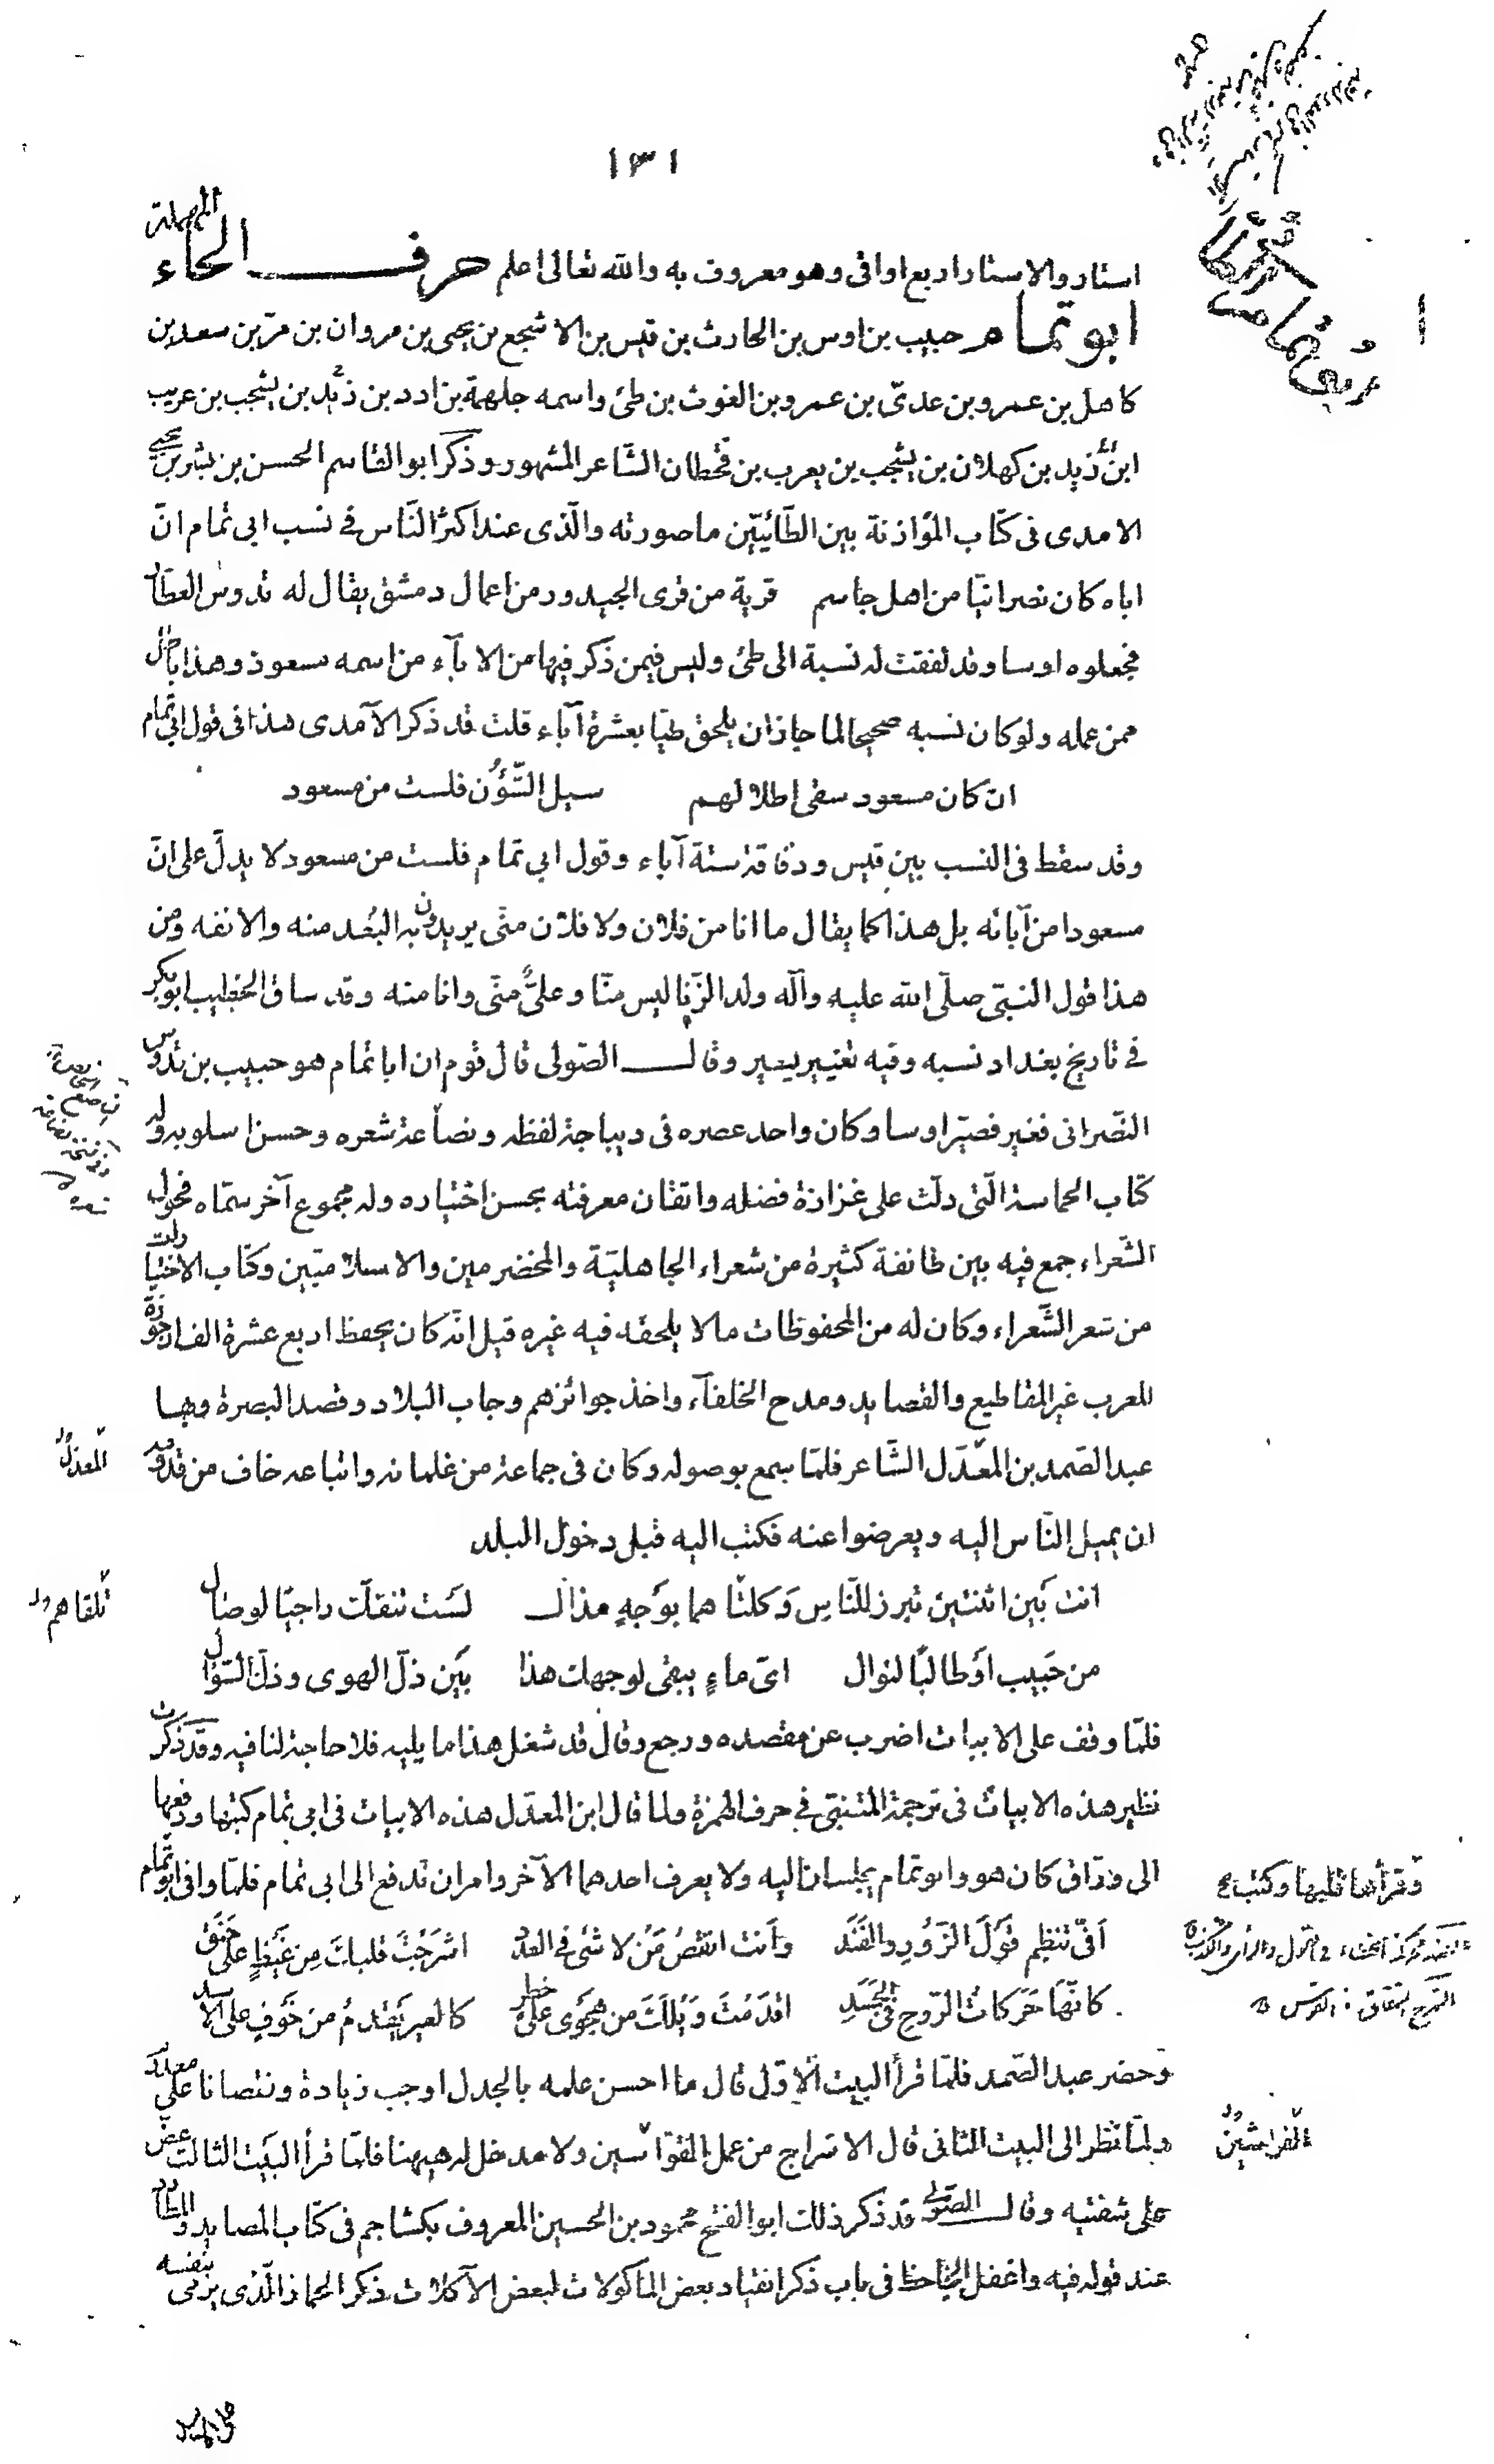 ١٣١
استار والاستار اربع اواقى وهو معروف به والله تعالى اعلم حرف الحاء المهملة
ابو تمام حبيب بن اوس بن الحارث بن قيس بن الاشجع بن يحيى بن مروان بن مرّ بن سعد بن
كاهل بن عمرو بن عدىّ بن عمرو بن الغوث بن طئ واسمه جلهمة بن ادد بن زيد بن يشجب بن عريب
ابن زيد بن كهلان بن يشجب بن يعرب بن قحطان الشّاعر المشهور وذكر ابو القاسم الحسن بن بشر بن يحيى
الامدى فى كتاب الموازنة بين الطّائيّين ما صورته والّذى عند اكثر النّاس فى نسب ابى تمام انّ
اباه كان نصرانيّا من اهل جاسم قرية من قرى الجيدور من اعمال دمشق يقال له تدوس العطّار
فجعلوه اوسا وقد لفقت له نسبة الى طئ وليس فيمن ذكر فيها من الاباء من اسمه مسعود وهذا باطل
ممن عمله ولو كان نسبه صحيحا لما جاز ان يلحق طيّا بعشرة آباء قلت قد ذكر الآمدى هذا فى قول ابى تمام
ان كان مسعود سقى اطلالهم سبل الشّؤن فلست من مسعود
وقد سقط فى النسب بين قيس ودفاقة ستة آباء وقول ابى تمام فلست من مسعود لا يدلّ على انّ
مسعودا من آبائه بل هذا كما يقال ما انا من فلان ولا فلان منّى يريدون به البُعد منه والانفه ومن
هذا قول النبىّ صلّى الله عليه وآله ولد الزّنا ليس منّا وعلىٌّ منّى وانا منه وقد ساق الخطيب ابو بكر
فى تاريخ بغداد نسبه وفيه تغيير يسير وقال الصّولى قال قوم ان ابا تمام هو حبيب بن تدوس
النّصرانى فغير فصيّر اوسا وكان واحد عصره فى ديباجة لفظه ونصاعة شعره وحسن اسلوبه وله
كتاب الحماسة الّتى دلّت على غزارة فضله واتقان معرفته بحسن اختياره وله مجموع آخر سمّاه فحول
الشّعراء جمع فيه بين طائفة كثيرة من شعراء الجاهليّة والمخضرمين والاسلاميّين وكتاب الاختيارات
من شعر الشّعراء وكان له من المحفوظات ما لا يلحقه فيه غيره قيل انّه كان يحفظ اربع عشرة الف ارجوزة
للعرب غير المقاطيع والقصايد ومدح الخلفآء واخذ جوائزهم وجاب البلاد وقصد البصرة وبها
عبد الصّمد بن المعّدّل الشّاعر فلمّا سمع بوصوله وكان فى جماعة من غلمانه واتباعه خاف من قدومه
المعذل
ان يميل النّاس اليه ويعرضوا عنه فكتب اليه قبل دخول البلد
انت بَين اثنتين تبرز للنّاسِ وَكلتاهما بوَجهٍ مذال لسَت تنفكّ راجيًا لوصال
تلقاهم
من حَبيب اَو طالبًا لنوال اىّ ماءٍ يبقى لوجهك هذا بَين ذلّ الهوى وذلّ السّؤال
فلمّا وقف على الابيات اضرب عن مقصده ورجع وقال قد شغل هذا ما يليه فلا حاجة لنا فيه وقد ذكرت
نظير هذه الابيات فى ترجمة المتنبّى فى حرف الهمزة ولما قال ابن المعذّل هذه الابيات فى ابى تمام كتبها ودفعها
الى ورّاق كان هو وابو تمام يجلسان اليه ولا يعرف احدهما الآخر وامر ان تدفع الى ابى تمام فلمّا وافى ابو تمام
وقرأها قلبها وكتب
اَفىّ تنظِم قَولَ الزّورِ والفَنَد واَنت انقصُ مَن لا شئ فى العدد اشرَجتَ قلبك مِن غَيظٍ على حَنَق
كانّها حَركاتُ الرّوحِ فى الجَسَدِ اقدَمتَ وَيلَك من هجوى على خطر كالعير يَقدمُ من خَوفٍ على الاسد
وحضر عبد الصّمد فلمّا قرأ البيت الاوّل قال ما احسن علمه بالجدل اوجب زيادة ونقصانا على معدوم
ولمّا نظر الى البيت الثانى قال الاشراج من عمل القوّاسين ولا مدخل له هيهنا فلمّا قرأ البَيت الثالث عضّ
الفراشين
على شفتيه وقال الصّولى قد ذكر ذلك ابو الفتح محمود بن الحسين المعروف بكشاجم فى كتاب المصايد والمطارد
عند قوله فيه واغفل الجاحظ فى باب ذكر انقياد بعض الماكولات لبعض الآكلات ذكر الحمار الّذى يرمى بنفسه